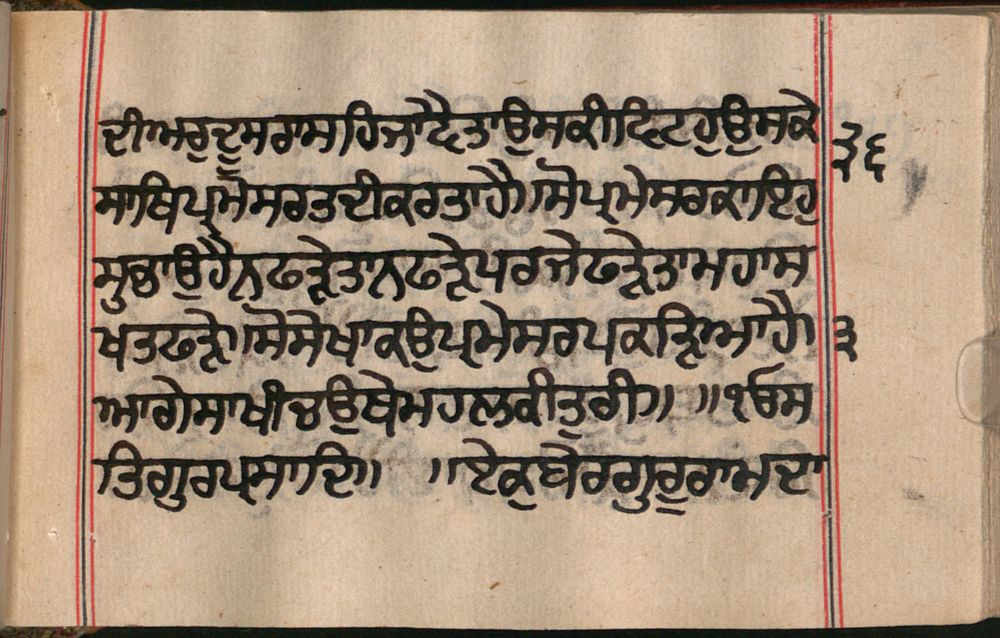 ਦੀਅਰੁਦੂਸਰਾਸਹਿਜਾਦੈਤਾਉਸਕੀਦਿਟਹੁਉਸਕੇ ੩੬
ਸਾਥਿਪ੍ਰਮੇਸਰਤਦੀਕਰਤਾਹੈ॥ਸੋਪ੍ਰਮੇਸਰਕਾਇਹੁ
ਸੁਭਾਉਹੈਨਛਡੇਤਾਨਛਡੇਪਰਜੇਛਡੇਤਾਮਹਾਸ
ਖਤਛਡੇ॥ਸੋਸੇਖਾਕਉਪ੍ਰਮੇਸਰਪਕੜਿਆਹੈ॥ ੩
ਆਗੇਸਾਖੀਚਉਥੇਮਹਲਕੀਤੁਰੀ॥ ॥੧ਓਸ
ਤਿਗੁਰਪ੍ਰਸਾਦਿ॥ ॥ਏਕੁਬੇਰਗੁਰੁਰਾਮਦਾ